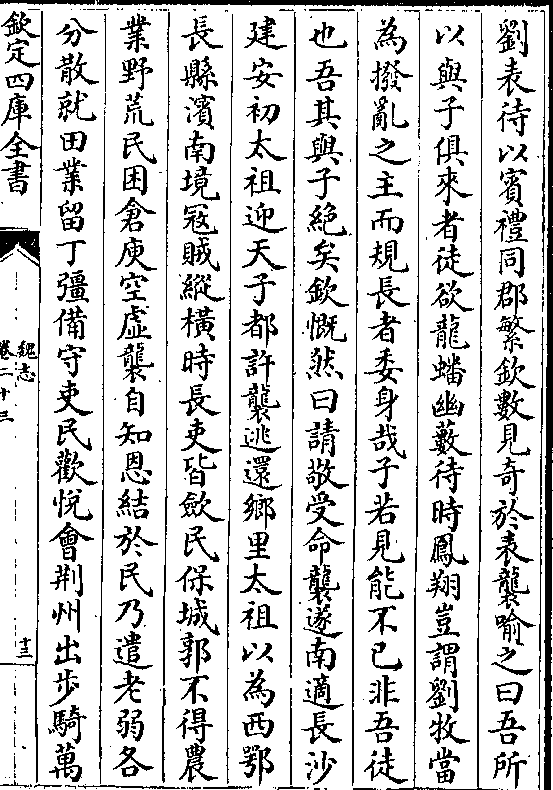 劉表待以賓禮同郡繁欽數見竒於表襲喻之曰吾所
以與子俱來者徒欲龍蟠幽藪待時鳳翔豈謂劉牧當
為撥亂之主而規長者委身哉子若見能不已非吾徒
也吾其與子絶矣欽慨然曰請敬受命襲遂南適長沙
建安初太祖迎天子都許襲逃還鄉里太祖以為西鄂
長縣濱南境寇賊縱橫時長吏皆斂民保城郭不得農
業野荒民困倉庾空虛襲自知恩結於民乃遣老弱各
分散就田業留丁彊備守吏民歡悅會荆州出步騎萬
欽定四庫全書
魏志
卷二十三
十三